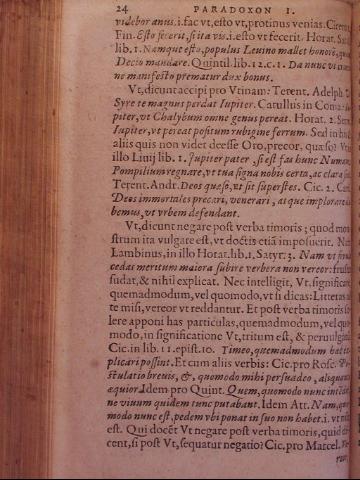 24 PARADOXON I.
videbor anus. i. fac vt, esto vt, protinus venias. Cicero
Fin. Esto fecerit, si ita vis. i. esto vt fecerit. Horat.
lib. 1. Namque esto, populus Leuino mallet honorē,
Decio mandare. Quintil. lib. 12. c. 1. Da nunc vt
ne manifesto prematur dux bonus.
Vt, dicunt accipi pro Vtinam: Terent. Adelph.
Syre te magnus perdat Iupiter. Catullus in Coma:
piter, vt Chalybum omne genus pereat. Horat. 2.
Iupiter, vt pereat positum rubigine ferrum. Sed in his
aliis quis non videt deesse Oro, precor, quæso? Vt
illo Liuij lib. 1. Iupiter pater, si est fas hunc Numam
Pompilium regnare, vt tua signa nobis certa, ac clara
Terent. Andr. Deos quæso, vt sit superstes. Cic. 2. Cat.
Deos immortales precari, venerari, as que implorare
bemus, vt vrbem defendant.
Vt, dicunt negare post verba timoris; quod
strum ita vulgare est, vt doctis etiā imposuerit. Nam
Lambinus, in illo Horat. lib. 1. Satyr. 3. Nam vt
cedas meritum maiora subire verbera non vereor:
sudat, & nihil explicat. Nec intelligit, Vt, significare
quemadmodum, vel quomodo, vt si dicas: Litteras
te misi, vereor vt reddantur. Et post verba timoris
lere apponi has particulas, quemadmodum, vel
modo, in significatione Vt, tritum est, & peruulgatū
Cic. in lib. 11. epist. 10. Timeo, quemadmodum
plicari possint. Et cum aliis verbis: Cic. pro Rosc.
stulatio breuis, &, quomodo mihi persuadeo, aliquanto
æquior. Idem pro Quint. Quem, quomodo nunc
ne viuum quidem tunc putabant. Idem Att. Nam,
modo nunc est, pedem vbi ponat in suo non habet. i. vt
est. Qui docēt Vt negare post verba timoris, quid
cent, si post Vt, sequatur negatio? Cic. pro Marcel.